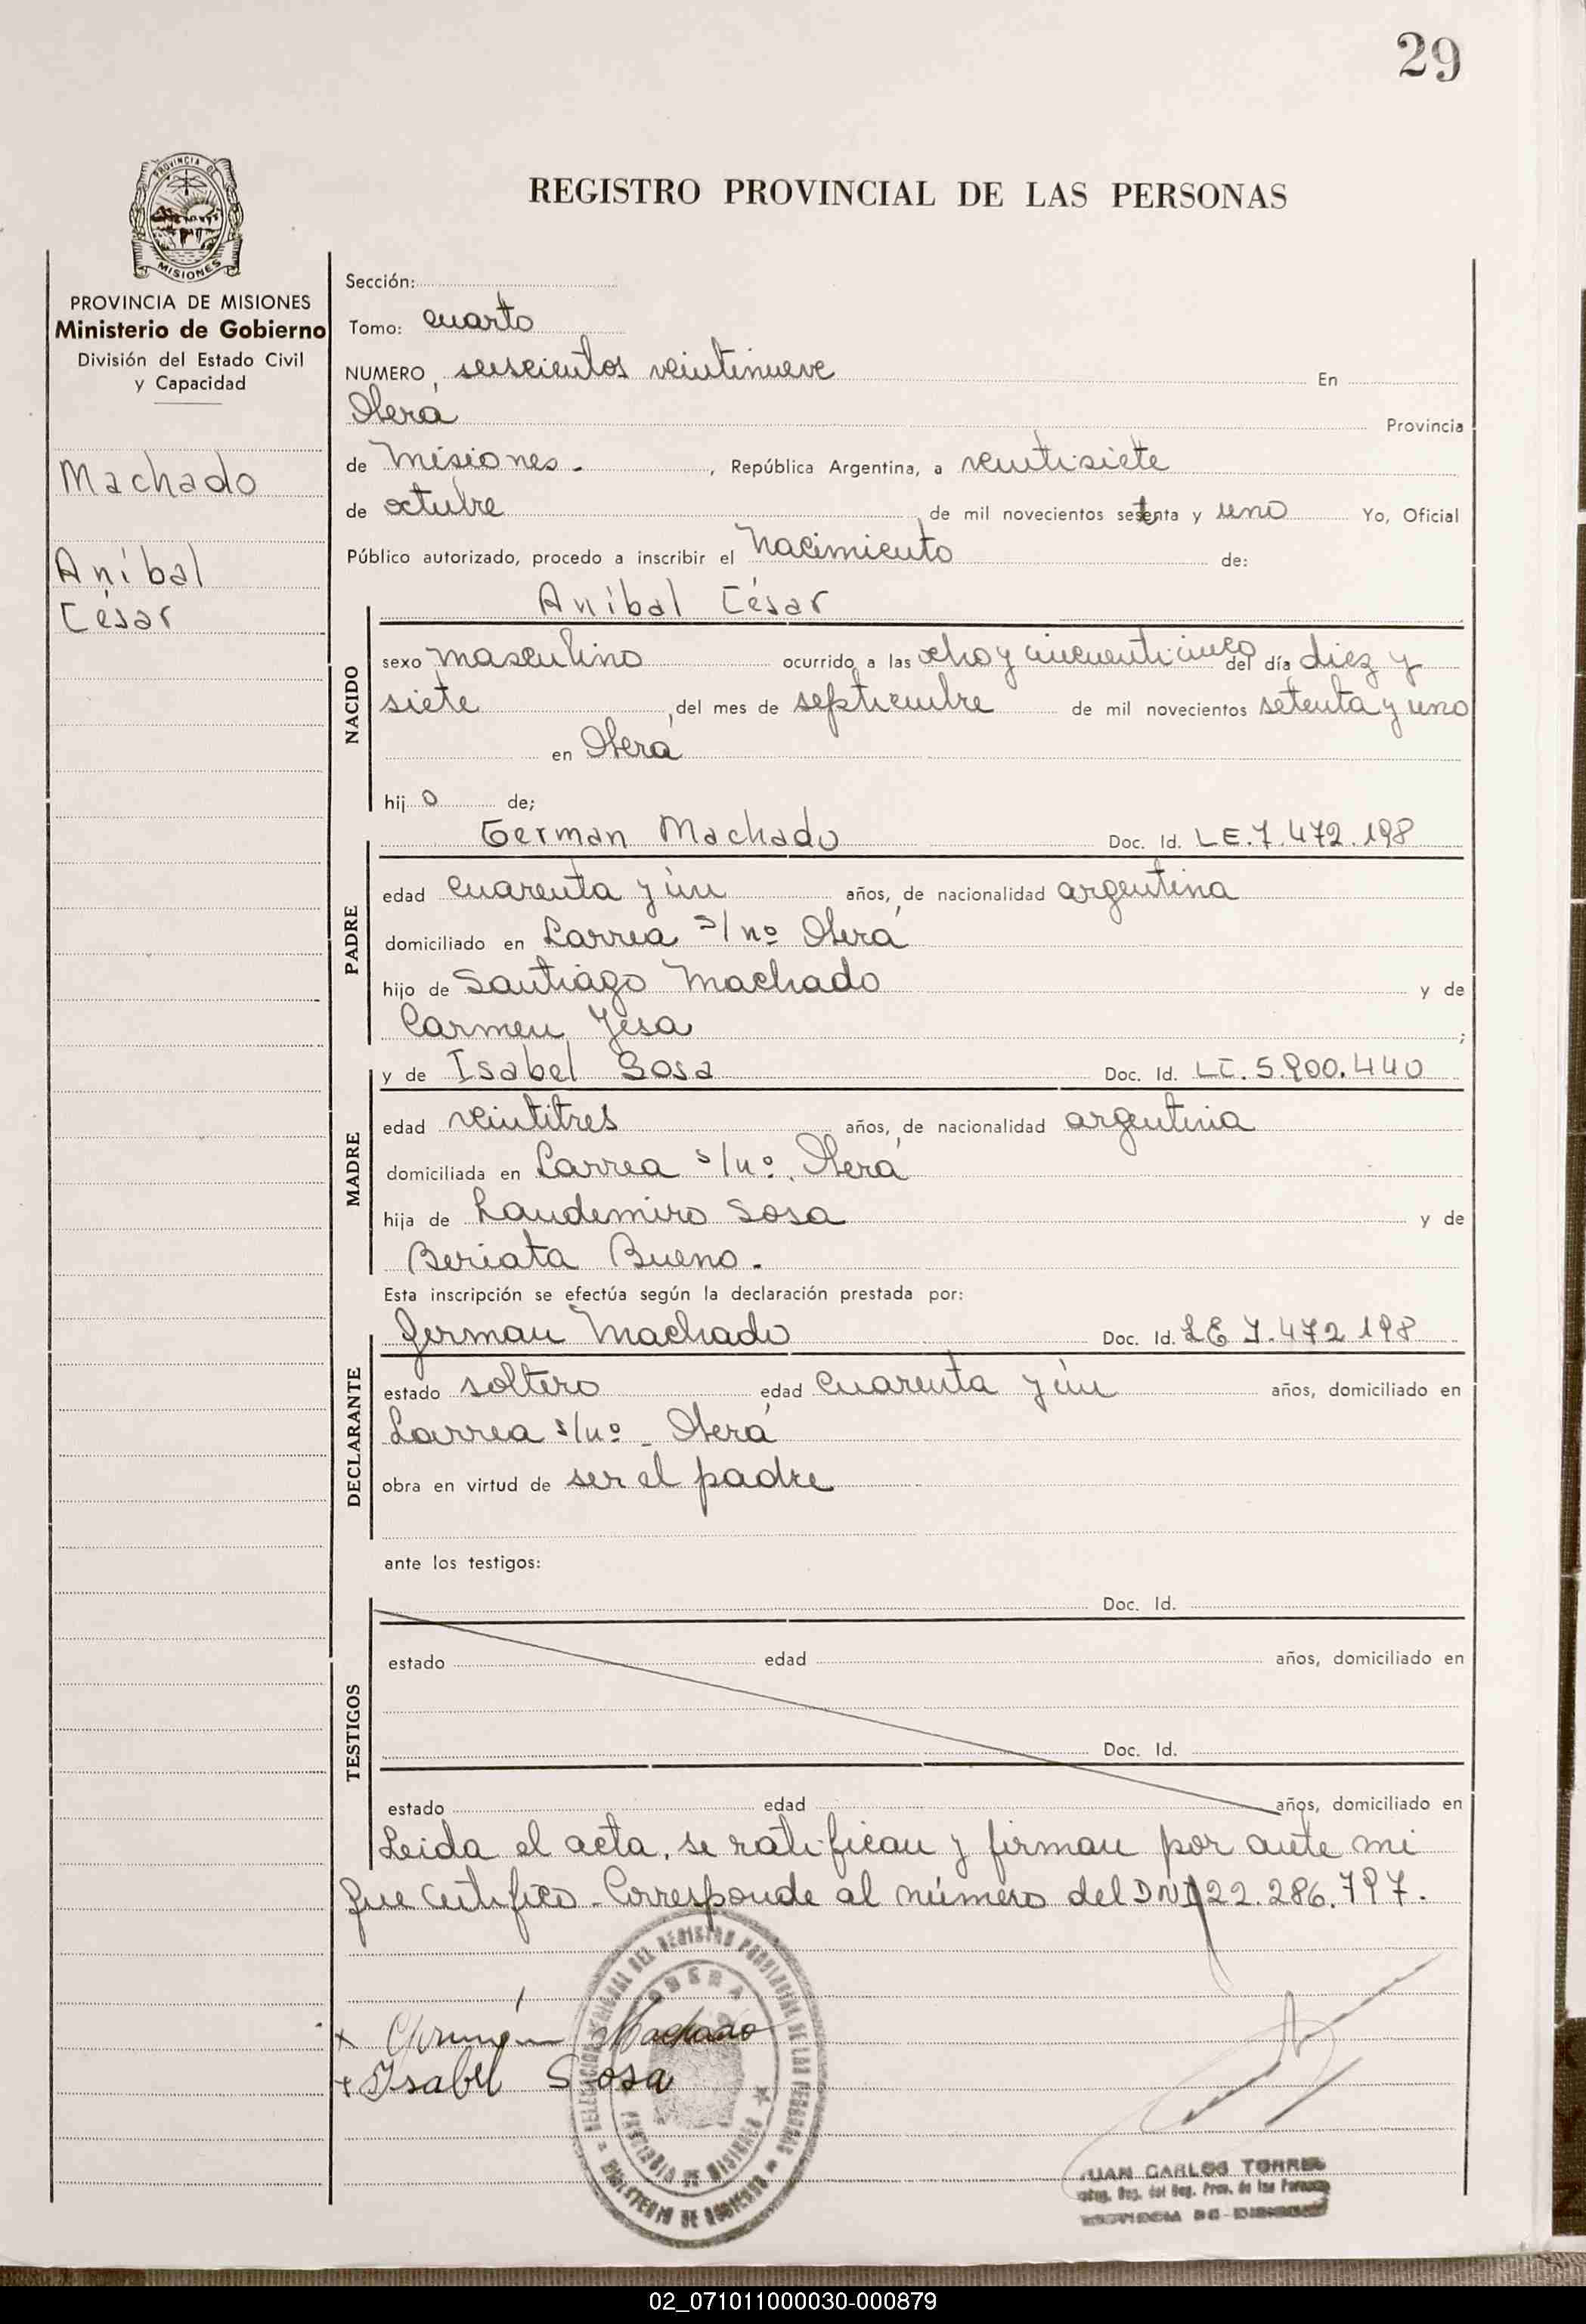 29
REGISTRO PROVINCIAL DE LAS PERSONAS
PROVINCIA DE MISIONES
PROVINCIA DE MISIONES
Ministerio de Gobierno
División del Estado Civil
y Capacidad
Machado
Aníbal
César
Sección:
Tomo: cuarto
NUMERO, seiscientos veintinueve En
Oberá Provincia
de Misiones.-, República Argentina, a veintisiete
de octubre de mil novecientos setenta y uno Yo, Oficial
Público autorizado, procedo a inscribir el Nacimiento de:
Aníbal César
NACIDO
sexo masculino ocurrido a las ocho y cincuenticinco del día diez y
siete, del mes de septiembre de mil novecientos setenta y uno
en Oberá
hijo de;
German Machado Doc. Id. LE.7.472.198
PADRE
edad cuarenta y ún años, de nacionalidad argentina
domiciliado en Larrea s/nº Oberá
hijo de Santiago Machado y de
Carmen Yesa;
y de Isabel Sosa Doc. Id. LC. 5.900.440
MADRE
edad veintitres años, de nacionalidad argentina
domiciliada en Larrea s/nº. Oberá
hija de Laudemiro Sosa y de
Beriata Bueno.
Esta inscripción se efectúa según la declaración prestada por:
German Machado Doc. Id. LE 7.472 198
DECLARANTE
estado soltero edad cuarenta y ún años, domiciliado en
Larrea s/nº - Oberá
obra en virtud de ser el padre
ante los testigos:
Doc. Id.
TESTIGOS
estado edad años, domiciliado en
Doc. Id.
estado edad años, domiciliado en
Leida el acta, se ratifican y firman por ante mi
que certifico. Corresponde al número del DNI 22.286.797.
x Germán Machado
+ Isabel Sosa
DEL REGISTRO PROVINCIAL DE LAS PERSONAS
OBERA
PROVINCIA DE MISIONES
MINISTERIO DE GOBIERNO
JUAN CARLOS TORRES
del Reg. Prov. de las Personas
PROVINCIA DE MISIONES
02_071011000030-000879